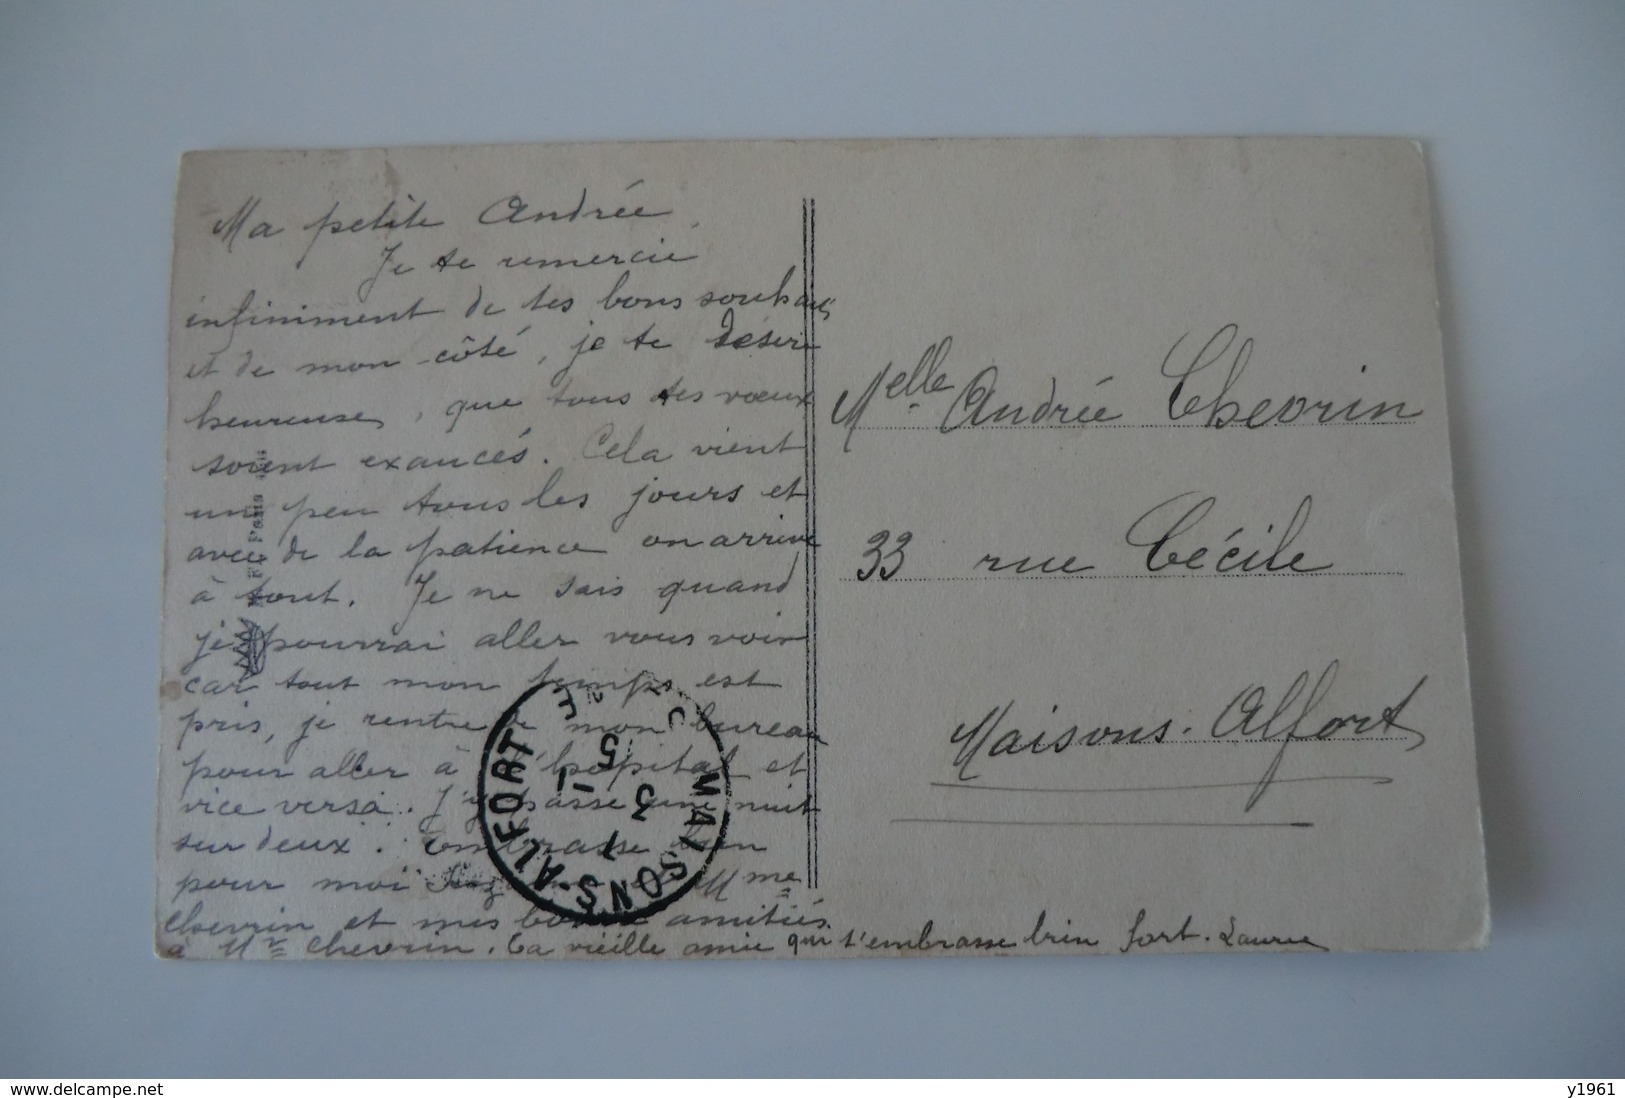 Ma petite Andrée,
Je te remercie
infiniment de tes bons souhaits
et de mon côté, je te désire
heureuse, que tous tes vœux
soient exaucés. Cela vient
un peu tous les jours et
avec de la patience on arrive
à tout. Je ne sais quand
je pourrai aller vous voir
car tout mon temps est
pris, je rentre de mon bureau
pour aller à l'hôpital et
vice versa. J'y passe une nuit
sur deux. Embrasse bien
pour moi Mme
Chevrin et mes bonnes amitiés
à Mr Chevrin. Ta vieille amie qui t'embrasse bien fort. Laure
Melle Andrée Chevrin
33 rue Cécile
Maisons-Alfort
MAISONS-ALFORT
3 1
5
Paris
delcampe.net
y1961